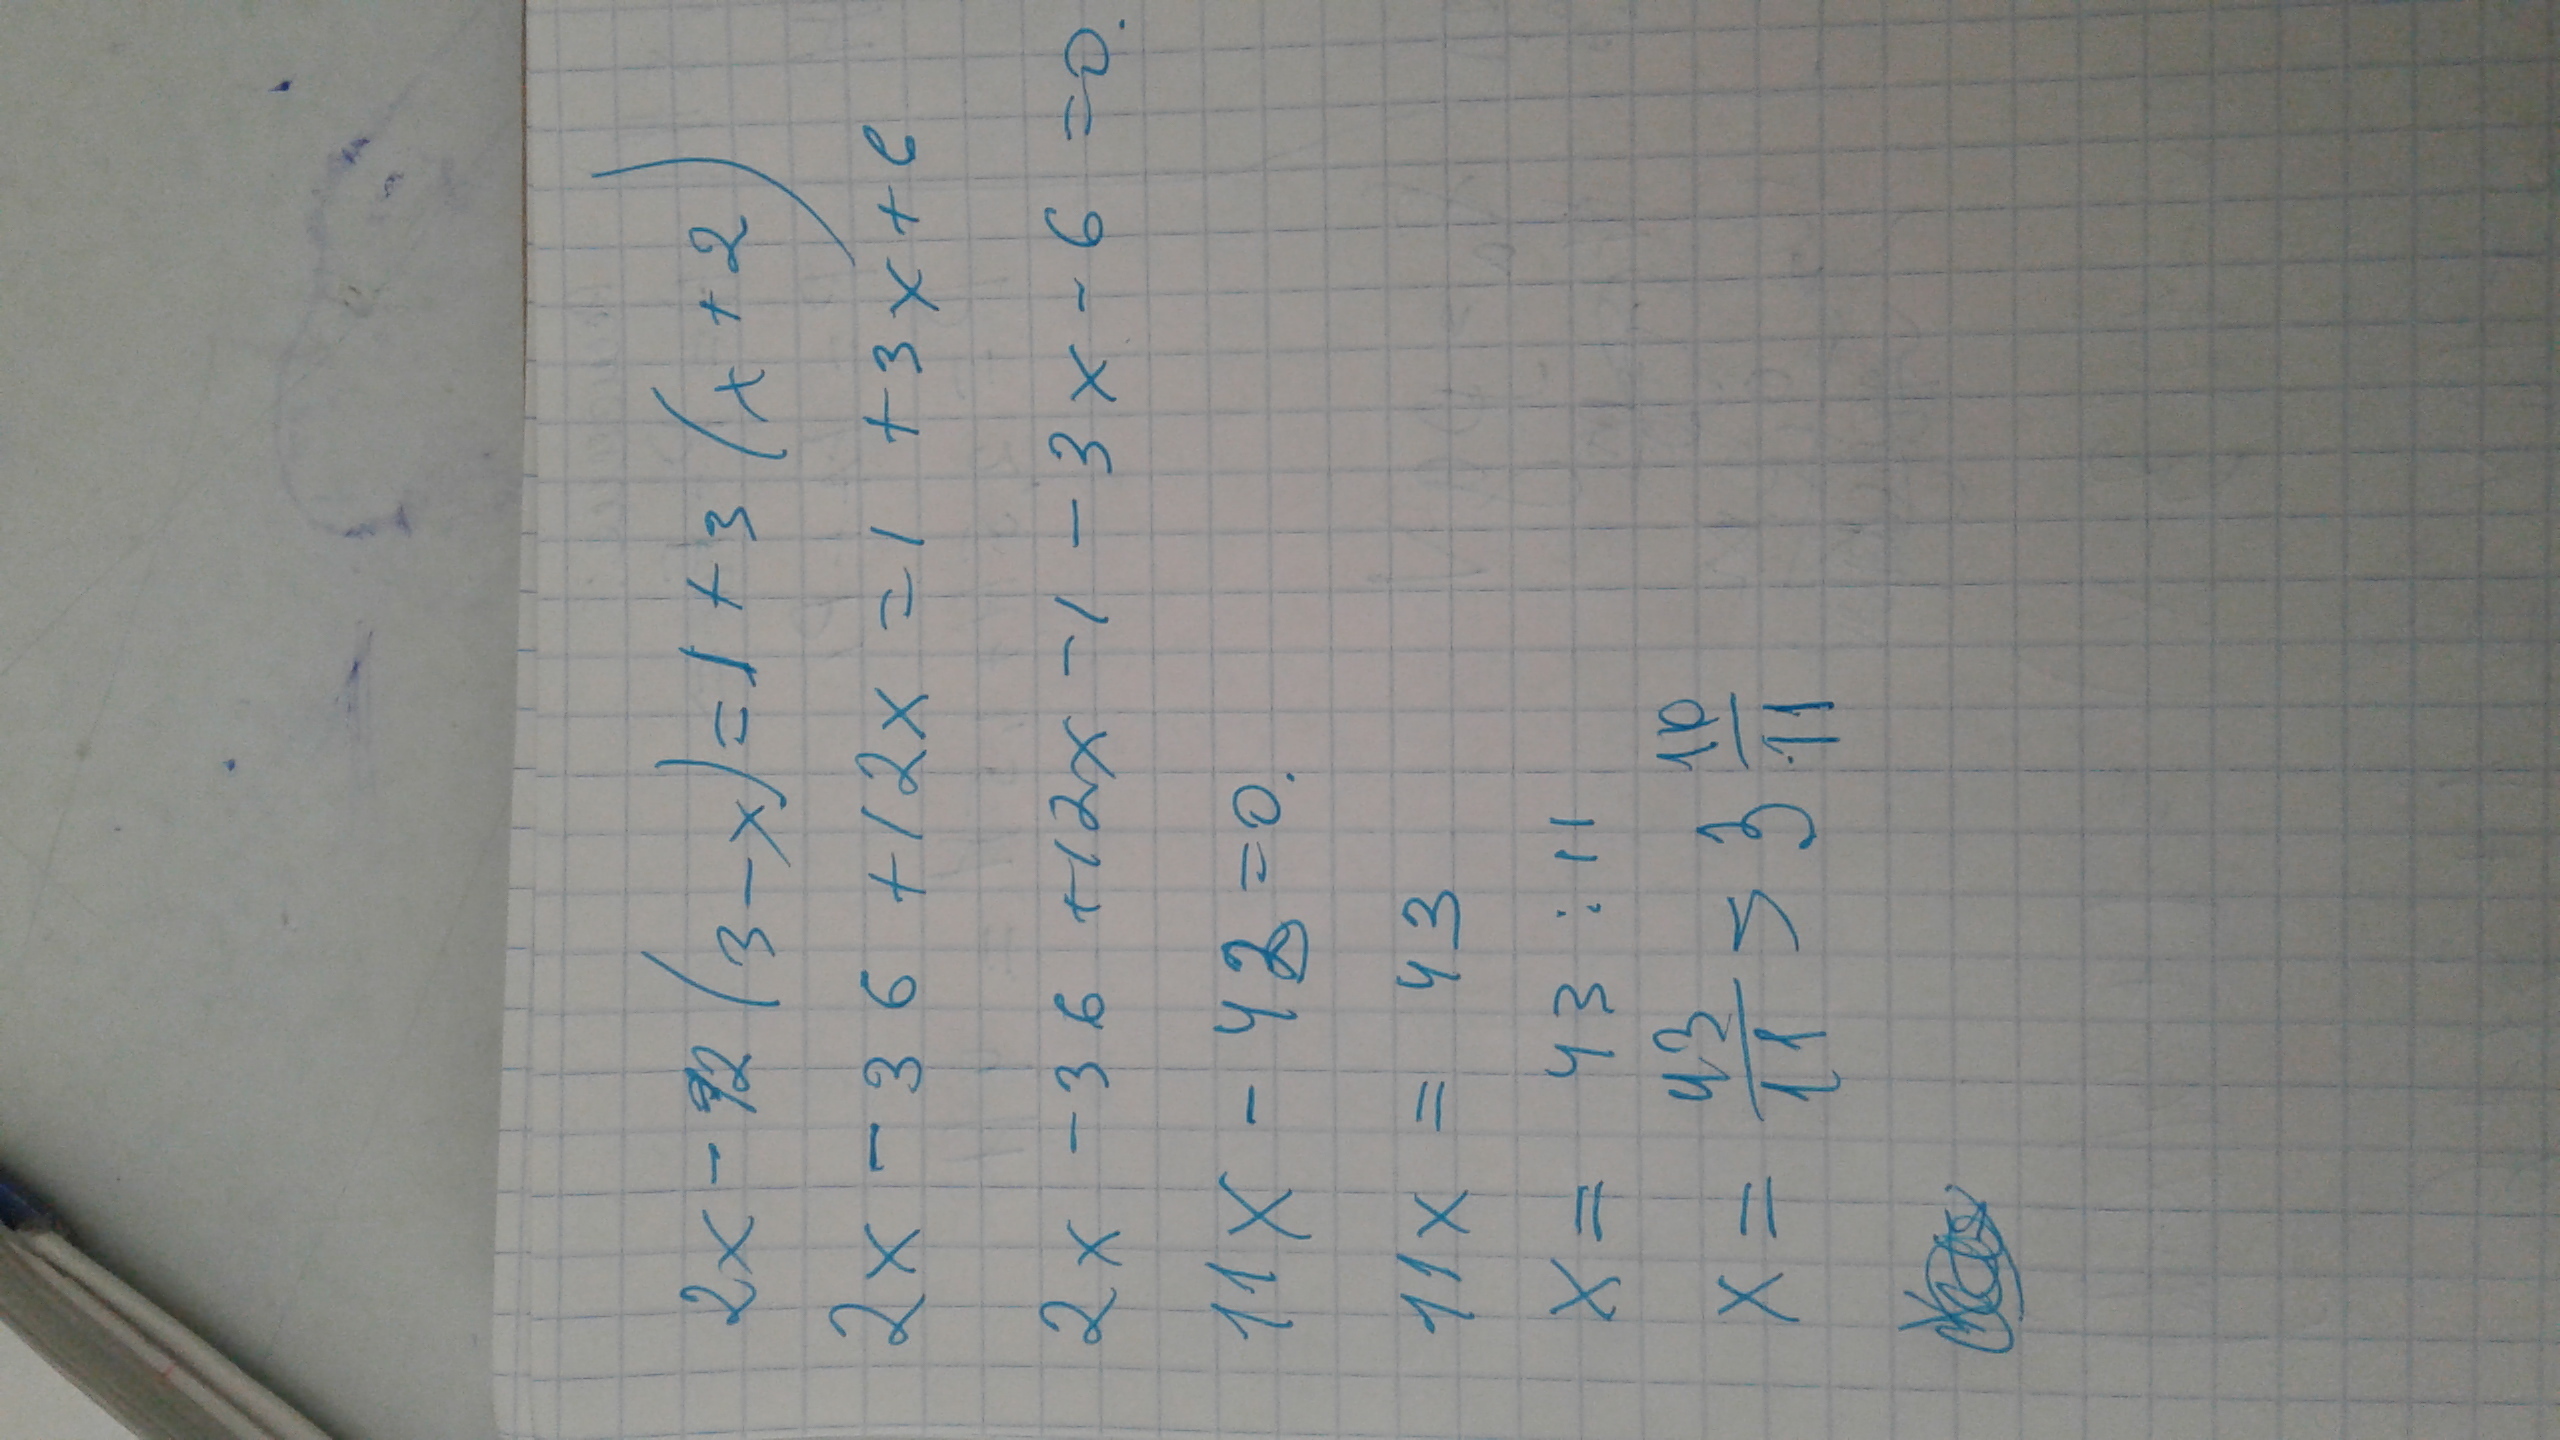 2x - 12 (3 - x) = 1 + 3 (x + 2)
2x - 36 + 12x = 1 + 3x + 6
2x - 36 + 12x - 1 - 3x - 6 = 0.
11x - 43 = 0.
11x = 43
x = 43 : 11
x = 43/11 > 3 10/11